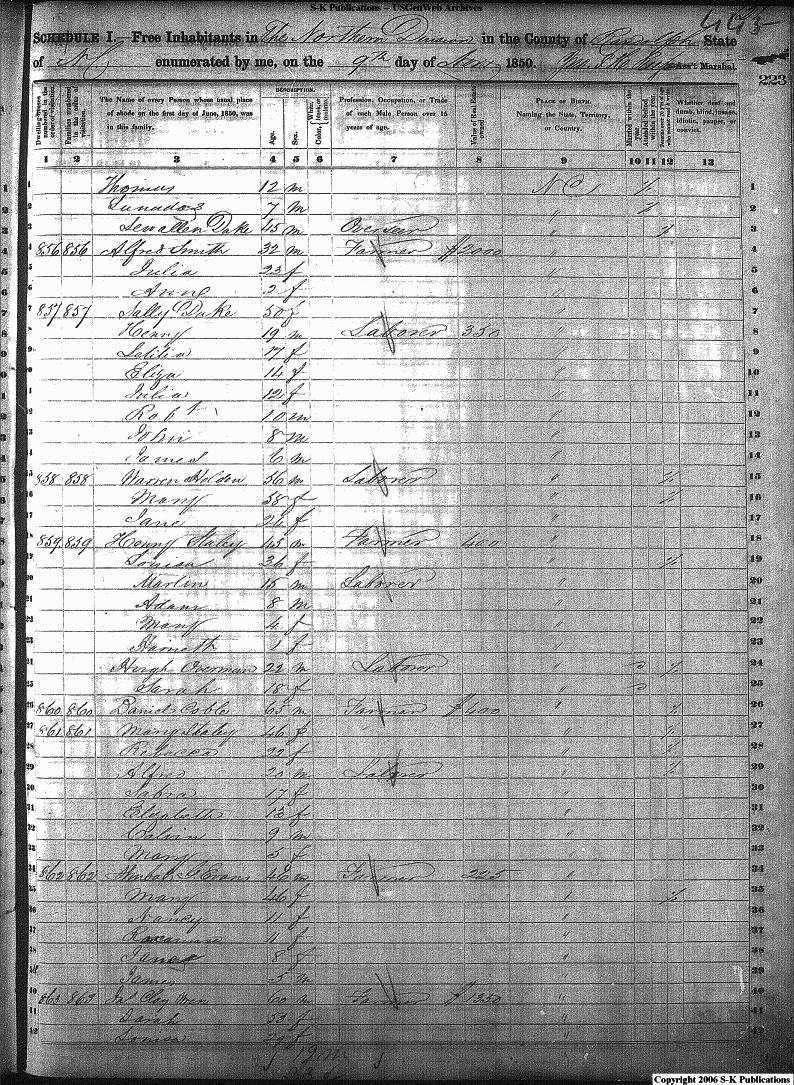 S-K Publications – USGenWeb Archives
SCHEDULE I.—Free Inhabitants in The Northern Division in the County of Randolph State
of NC enumerated by me, on the 9th day of 1850. Ass't Marshal.
223
Dwelling-houses numbered in the order of visitation.
Families numbered in the order of visitation.
The Name of every Person whose usual place of abode on the first day of June, 1850, was in this family.
DESCRIPTION.
Age.
Sex.
Color, White, black, or mulatto.
Profession, Occupation, or Trade of each Male Person over 15 years of age.
Value of Real Estate owned
PLACE OF BIRTH.
Naming the State, Territory, or Country.
Married within the year.
Attended School within the year.
Persons over 20 y'rs of age who cannot read & write.
Whether deaf and dumb, blind, insane, idiotic, pauper, or convict.
1 2 3 4 5 6 7 8 9 10 11 12 13
1 Thomas 12 m NC / 1
2 7 m " / 2
3 Duke 45 m Overseer " / 3
4 856 856 Alfred Smith 32 m Farmer $2000 " 4
5 Julia 23 f " 5
6 Anne 2 f " 6
7 857 857 Sally Duke 50 f " 7
8 Henry 19 m Laborer 350 " 8
9 Letitia 17 f " 9
10 Eliza 14 f " 10
11 Julia 12 f " 11
12 Robt 10 m " 12
13 John 8 m " 13
14 James 6 m " 14
15 858 858 Warren Holden 56 m Laborer " / 15
16 Mary 58 f " / 16
17 Jane f " 17
18 859 859 Henry Staley 45 m Farmer 400 " 18
19 Louisa 36 f " / 19
20 Martin 15 m Laborer " 20
21 Adam 8 m " 21
22 Mary 4 f " 22
23 1 f " 23
24 Hugh Overman 22 m Laborer " / 24
25 Sarah 18 f " 25
26 860 860 Daniel Coble 65 m Farmer $400 " / 26
27 861 861 Mary Staley 46 f " / 27
28 Rebecca 22 f " / 28
29 Alfred 20 m Laborer " / 29
30 Sabra 17 f " 30
31 Elizabeth 13 f " 31
32 Calvin 9 m " 32
33 Mary 5 f " 33
34 862 862 Evans 46 m Farmer 225 " 34
35 Mary 46 f " / 35
36 Nancy 11 f " 36
37 Roxanna 11 f " 37
38 8 f " 38
39 James 5 m " 39
40 863 863 60 m Farmer $1350 " 40
41 Sarah 53 f " 41
42 Louisa 29 f " 42
19 m
Copyright 2006 S-K Publications